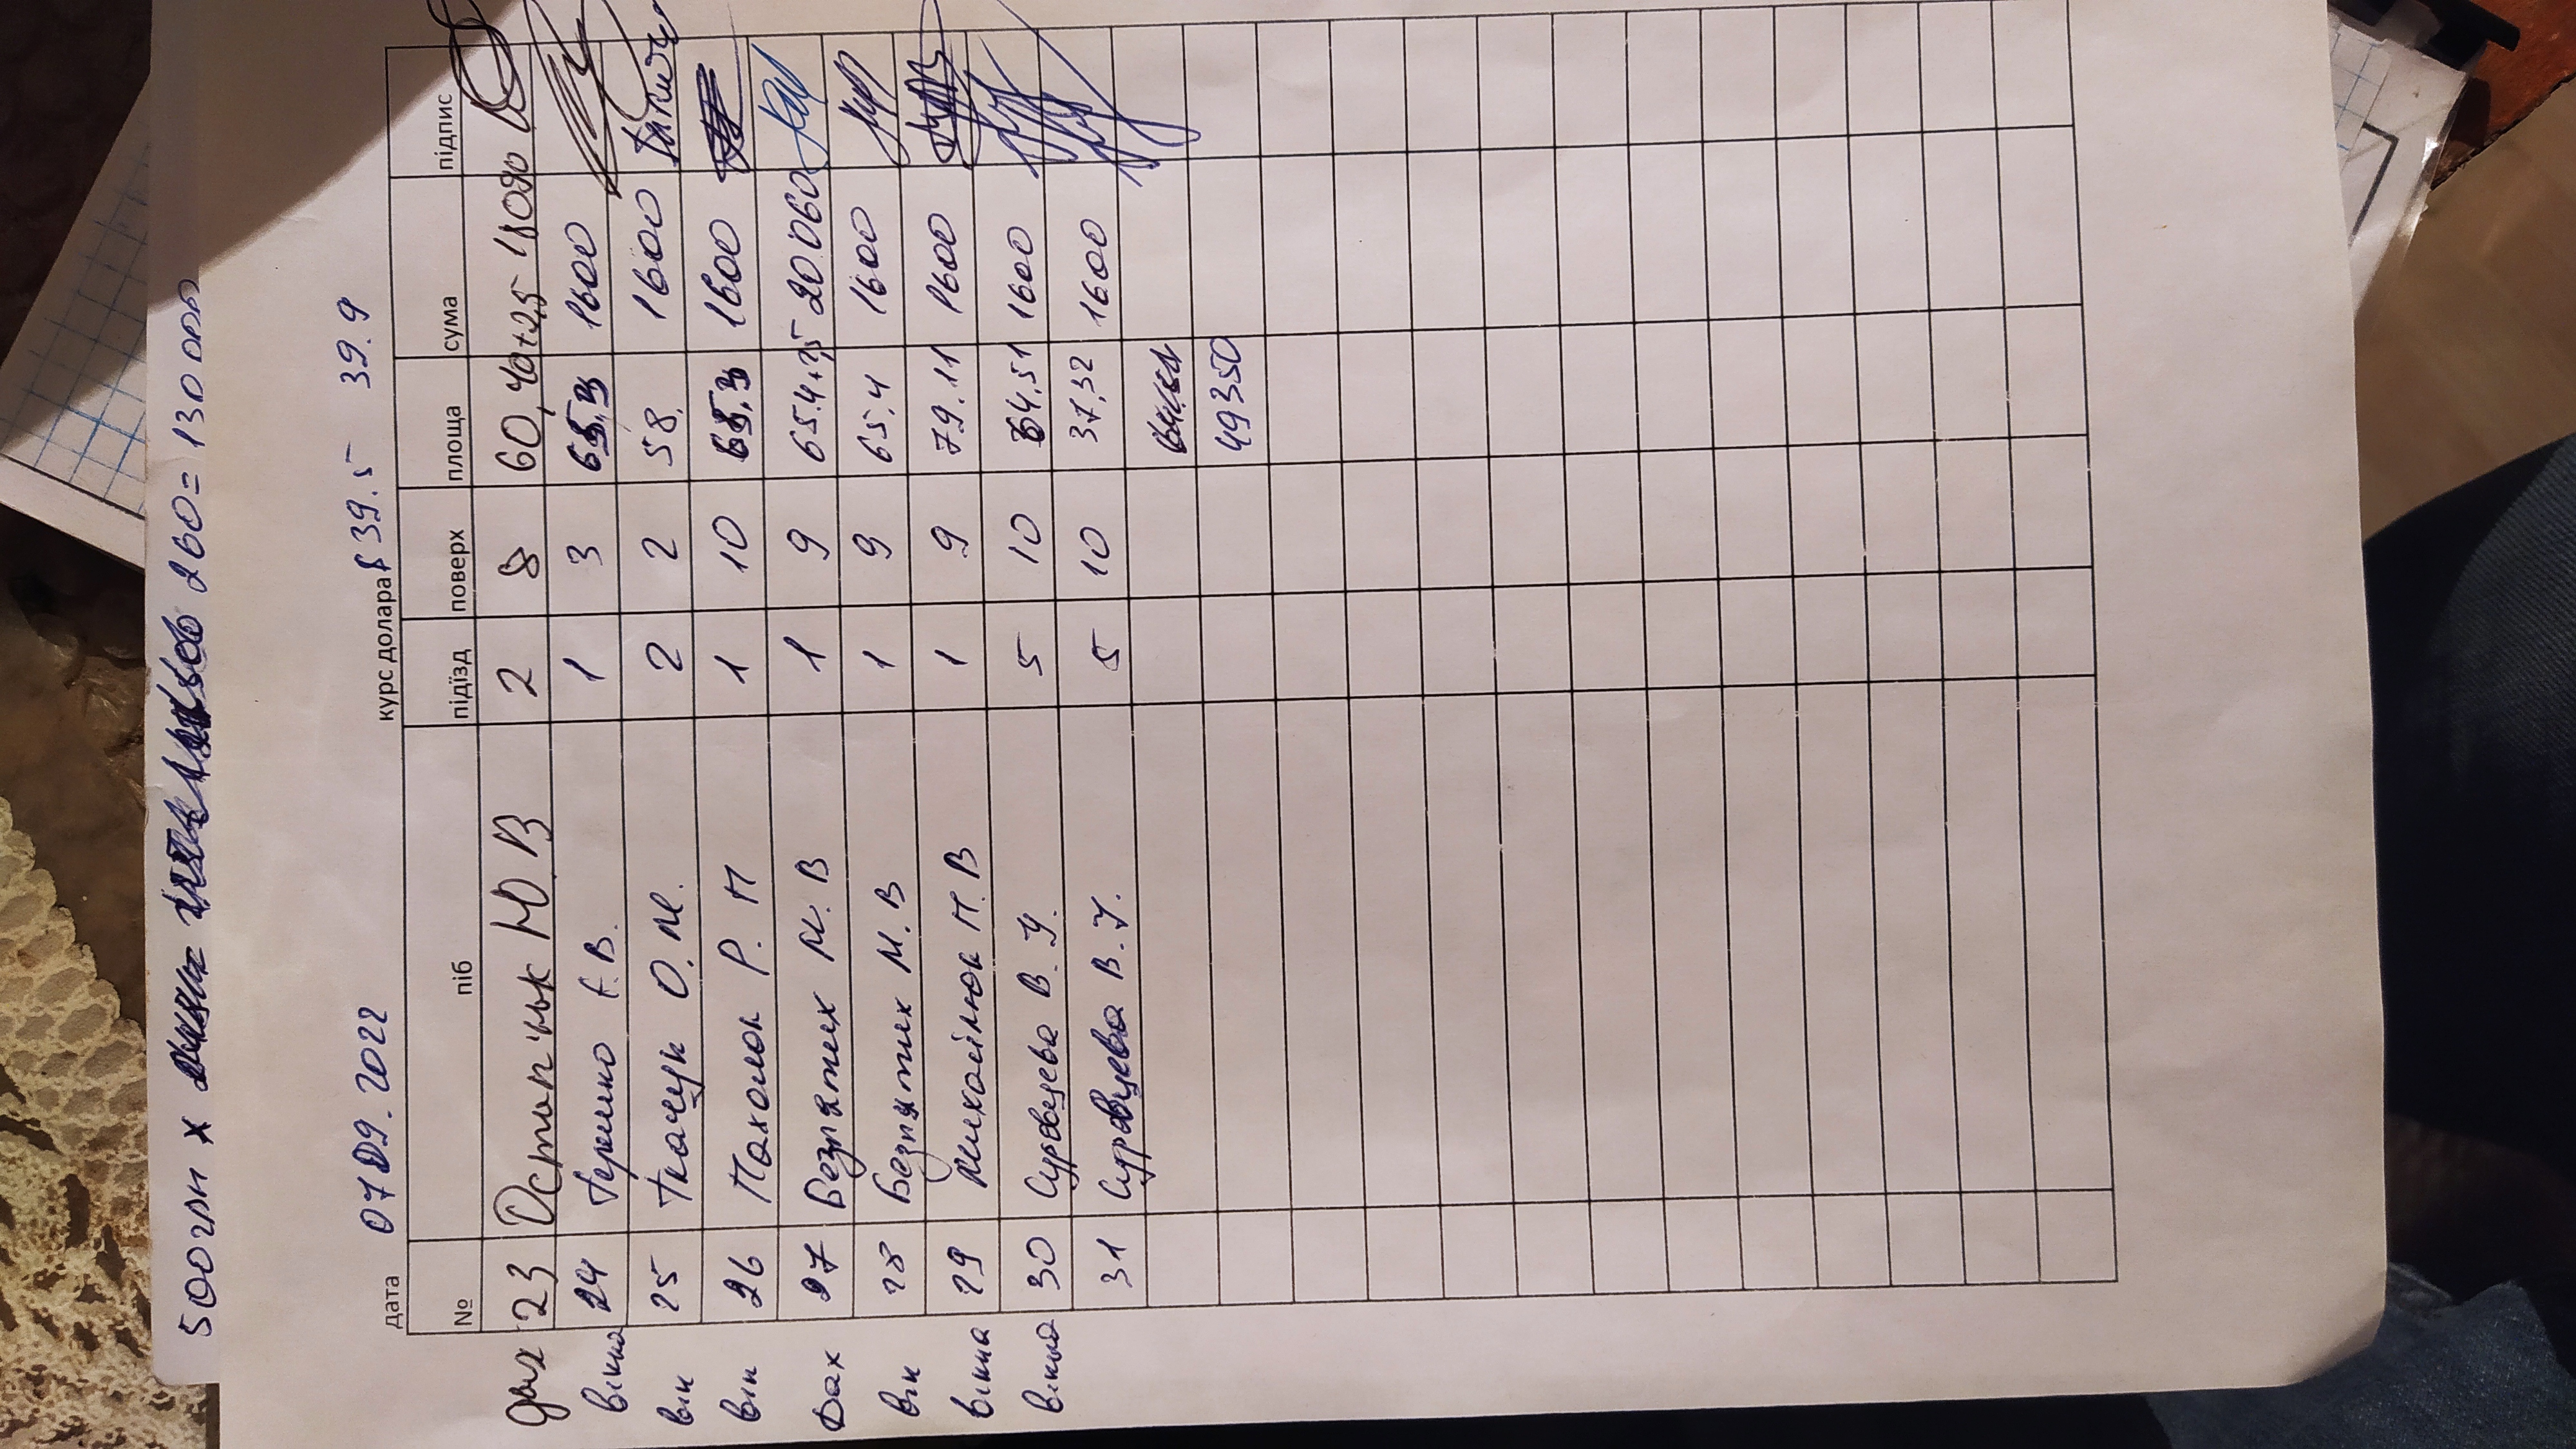 500грн х 260 = 130 000
дата 07.09.2022 курс долара $ 39.5 39.9
№ піб підїзд поверх площа сума підпис
дах 23 Остапчюк Ю.В 2 8 60,40+2,5 18090
вікна 24 Е.В. 1 3 1600
вік 25 Ткачук О.М. 2 2 58. 1600
вік 26 Пахолок Р. П 1 10 1600
Дах 27 Безпятих М. В 1 9 65.4+2,5 20.060
вік 28 Безпятих М. В 1 9 65,4 1600
вікна 29 Михайлюк П. В 1 9 79.11 1600
вікна 30 Суровцева В. У. 5 10 64.51 1600
31 Суровцева В. У. 5 10 37,32 1600
49350